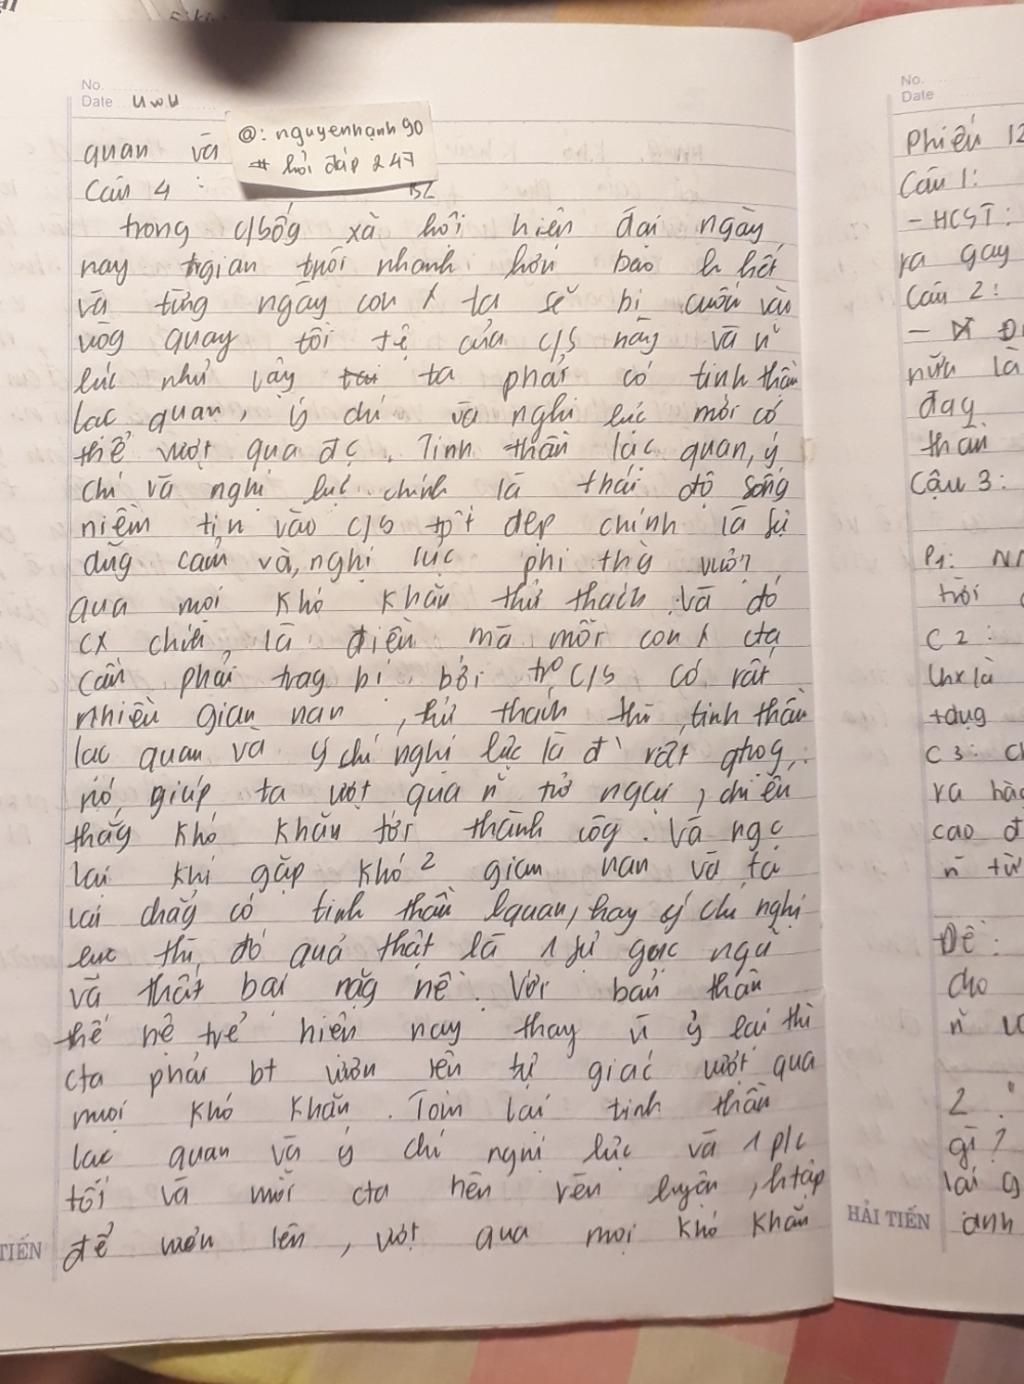 No.
Date UwU
@: nguyenhạnh90
# hỏi đáp 247
quan và
Câu 4 :
BL
trong c/sốg xã hội hiện đại ngày
nay tgian trôi nhanh hơn bao h hết
và từng ngày con ta sẽ bị cuốn vào
vòg quay tồi tệ của c/s này và
lúc như vậy ta phải có tinh thần
lạc quan, ý chí và nghị lực mới có
thể vượt qua đc. Tinh thần lạc quan, ý
chí và nghị lực chính là thái độ sống
niềm tin vào c/s tốt đẹp chính là sự
dũg cảm và nghị lực phi thg vươn
qua mọi khó khăn thử thách. Và đó
cx chính là điều mà mỗi con cta
cần phải trag bị bởi trog c/s có rất
nhiều gian nan, thử thách thì tinh thần
lạc quan và ý chí nghị lực là đ` rất qtrog,
nó giúp ta vượt qua n~ trở ngại, chiến
thắg khó khăn tới thành côg. Và ngc
lại khi gặp khó 2 gian nan và ta
lại chẳg có tinh thần lquan, hay ý chí nghị
lực thì đó quả thật là 1 sự gục ngã
và thất bại nặg nề. Với bản thân
thế hệ trẻ hiện nay thay vì ỷ lại thì
cta phải bt vươn lên tự giác vượt qua
mọi khó khăn. Tóm lại tinh thần
lạc quan và ý chí nghị lực và 1 p/c
tốt và mỗi cta nên rèn luyện, htập
để vươn lên, vượt qua mọi khó khăn
TIẾN
No.
Date
Phiếu 12
Câu 1:
- HCST:
ra gay
Câu 2:
nữa là
đay
thân
Câu 3:
P1:
trời
C 2 :
+dụg
C 3 :
ra
cao đ
n~ từ
Đề :
cho
2
gì ?
lại
HẢI TIẾN
anh